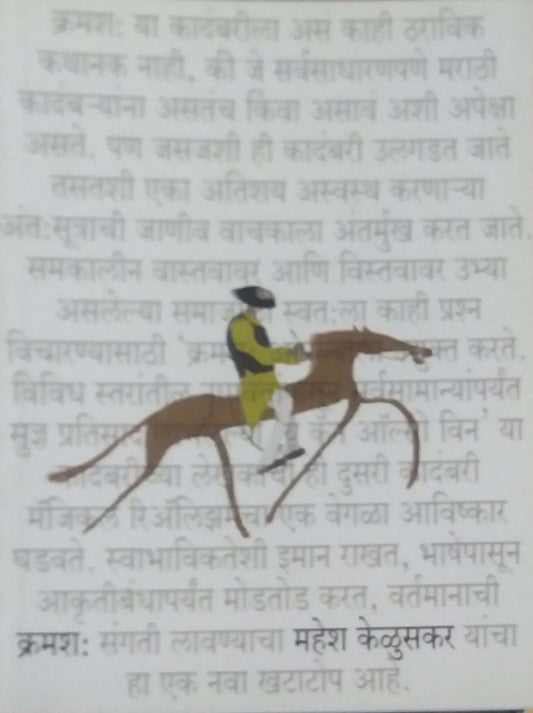 क्रमश: या कादंबरीला असं काही ठराविक
कथानक नाही, की जे सर्वसाधारणपणे मराठी
कादंबऱ्यांना असतंच किंवा असावं अशी अपेक्षा
असते. पण जसजशी ही कादंबरी उलगडत जाते
तसतशी एका अतिशय अस्वस्थ करणाऱ्या
अंत:सूत्राची जाणीव वाचकाला अंतर्मुख करत जाते.
समकालीन वास्तवावर आणि विस्तवावर उभ्या
असलेल्या स्वत:ला काही प्रश्न
विचारण्यासाठी करते.
विविध स्तरांतील
सुज्ञ ऑल्सो विन' या
ही दुसरी कादंबरी
मॅजिकल रिॲलिझमचा एक वेगळा आविष्कार
घडवते. स्वाभाविकतेशी इमान राखत, भाषेपासून
आकृतीबंधापर्यंत मोडतोड करत, वर्तमानाची
क्रमश: संगती लावण्याचा महेश केळुसकर यांचा
हा एक नवा खटाटोप आहे.